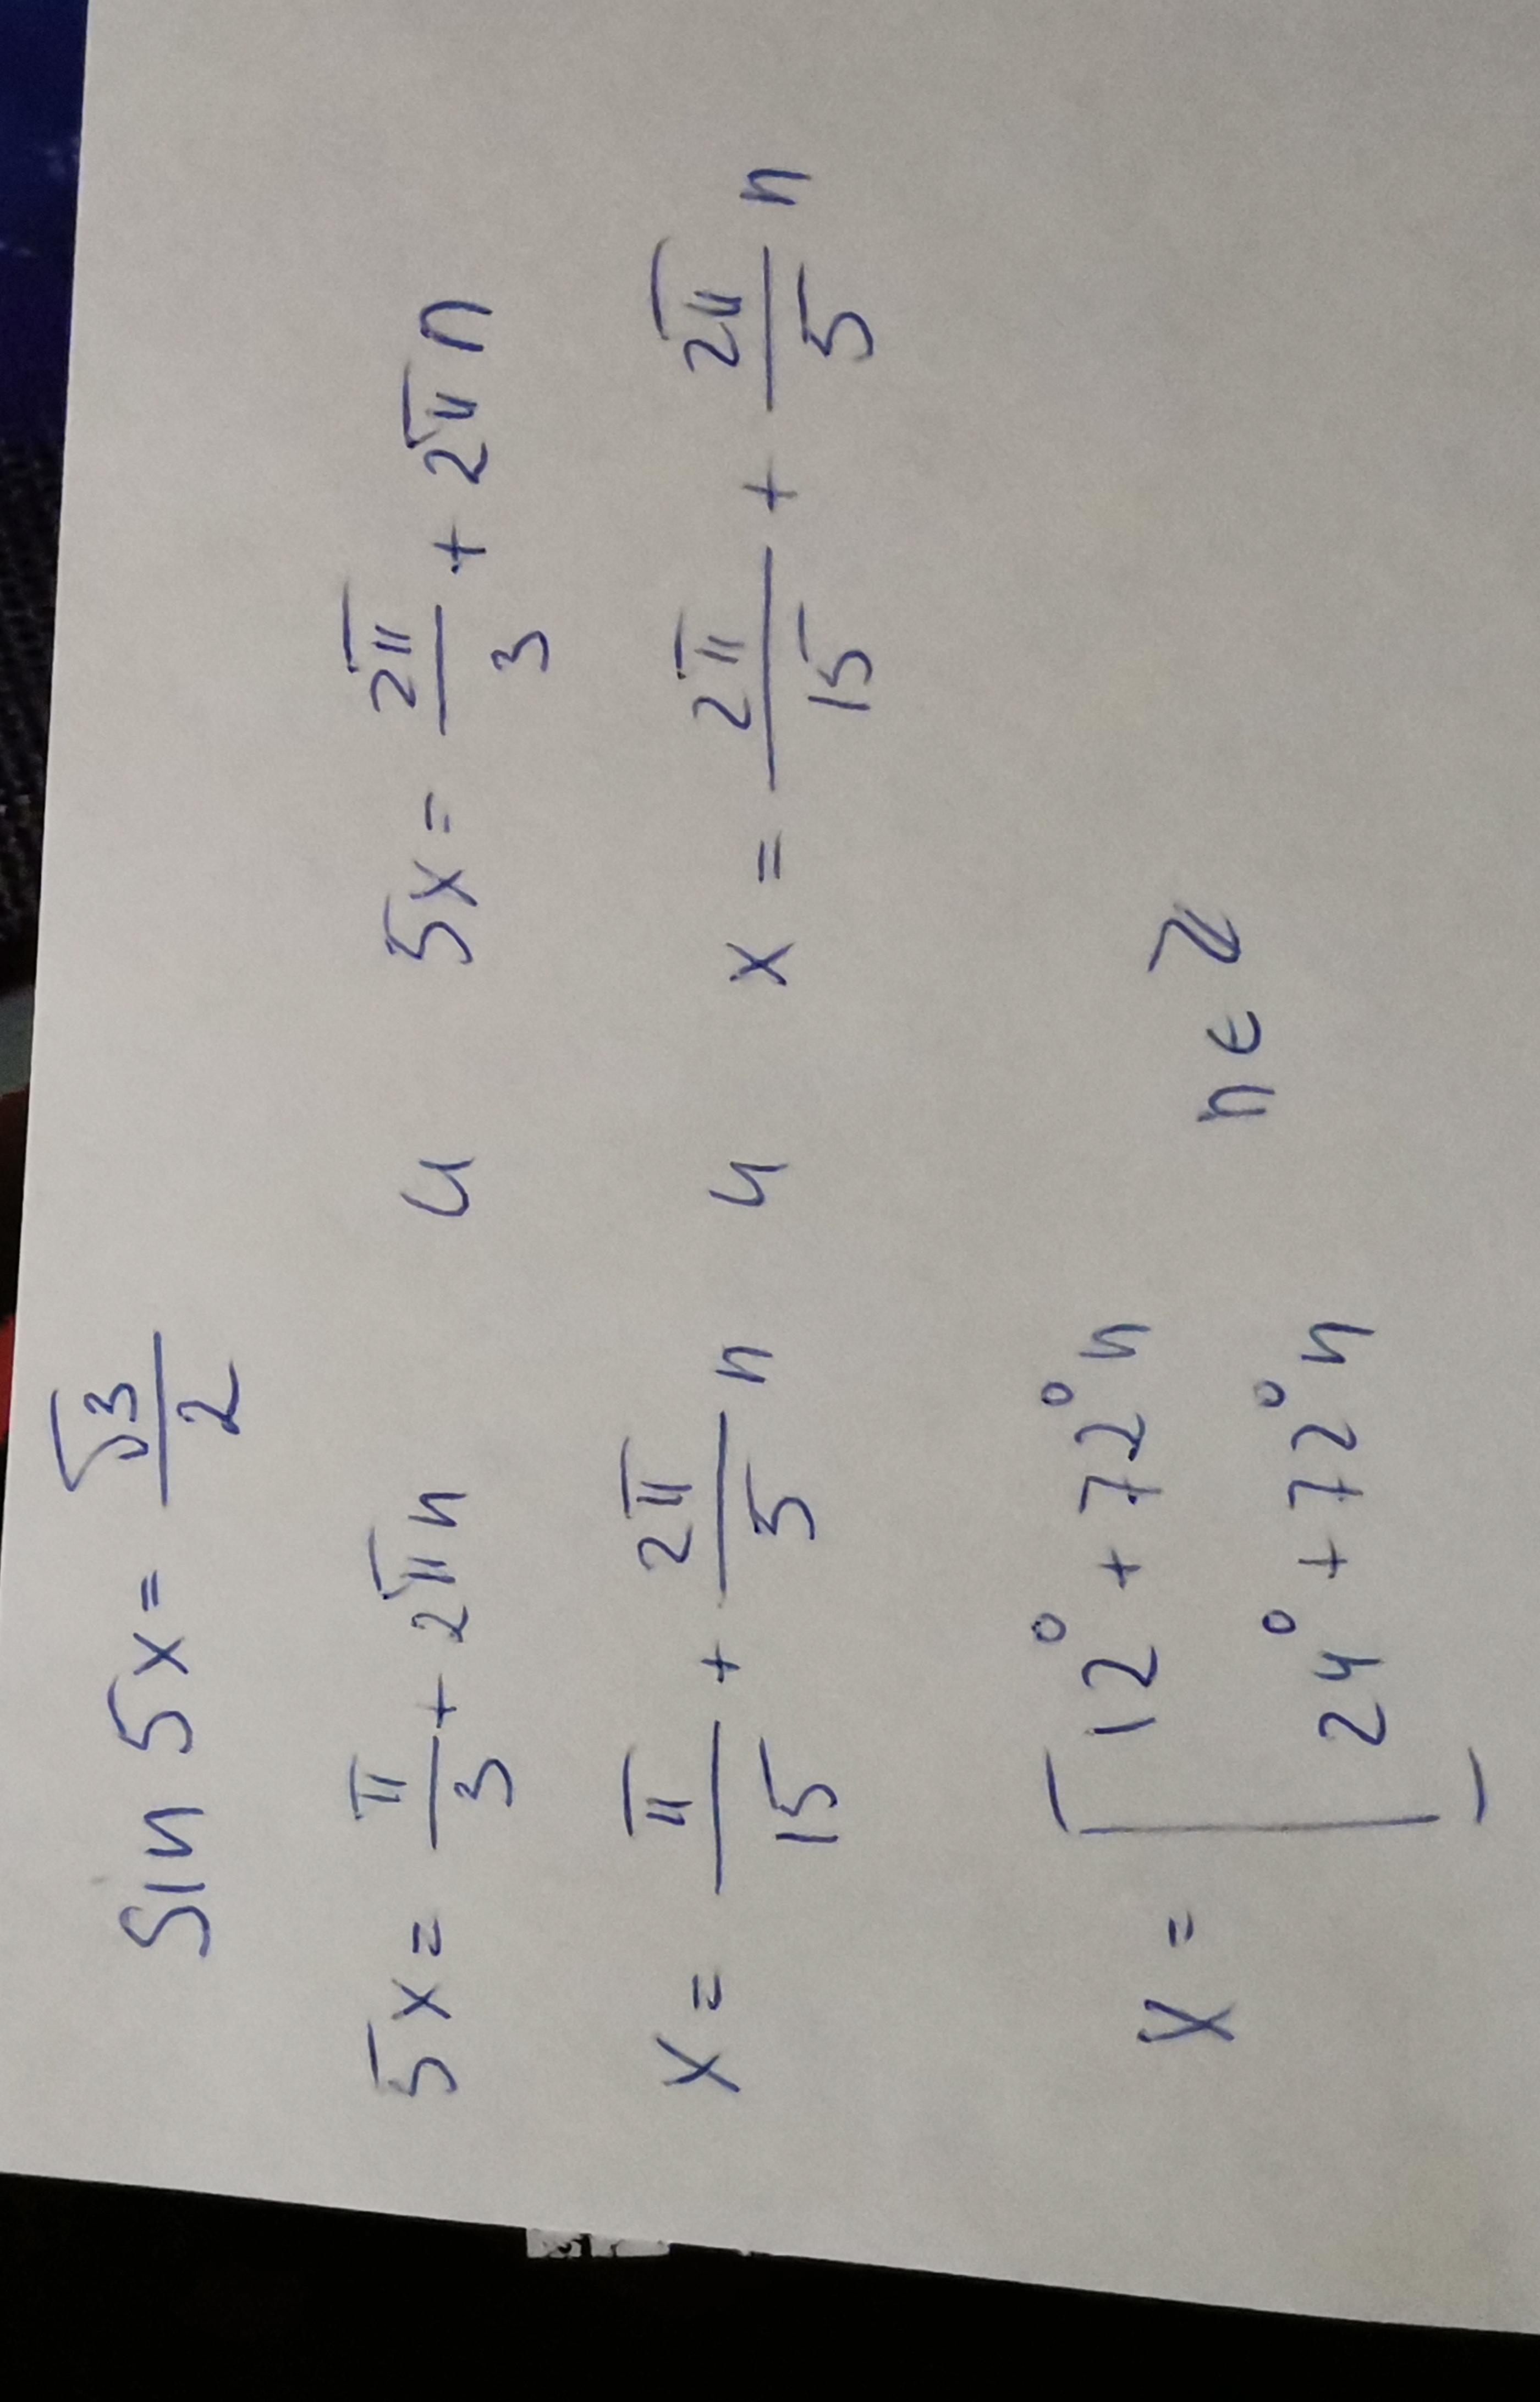 sin 5x = √3/2
5x = π/3 + 2πn и 5x = 2π/3 + 2πn
x = π/15 + 2π/5 n и x = 2π/15 + 2π/5 n
x = [ 12° + 72° n
24° + 72° n
n ∈ Z